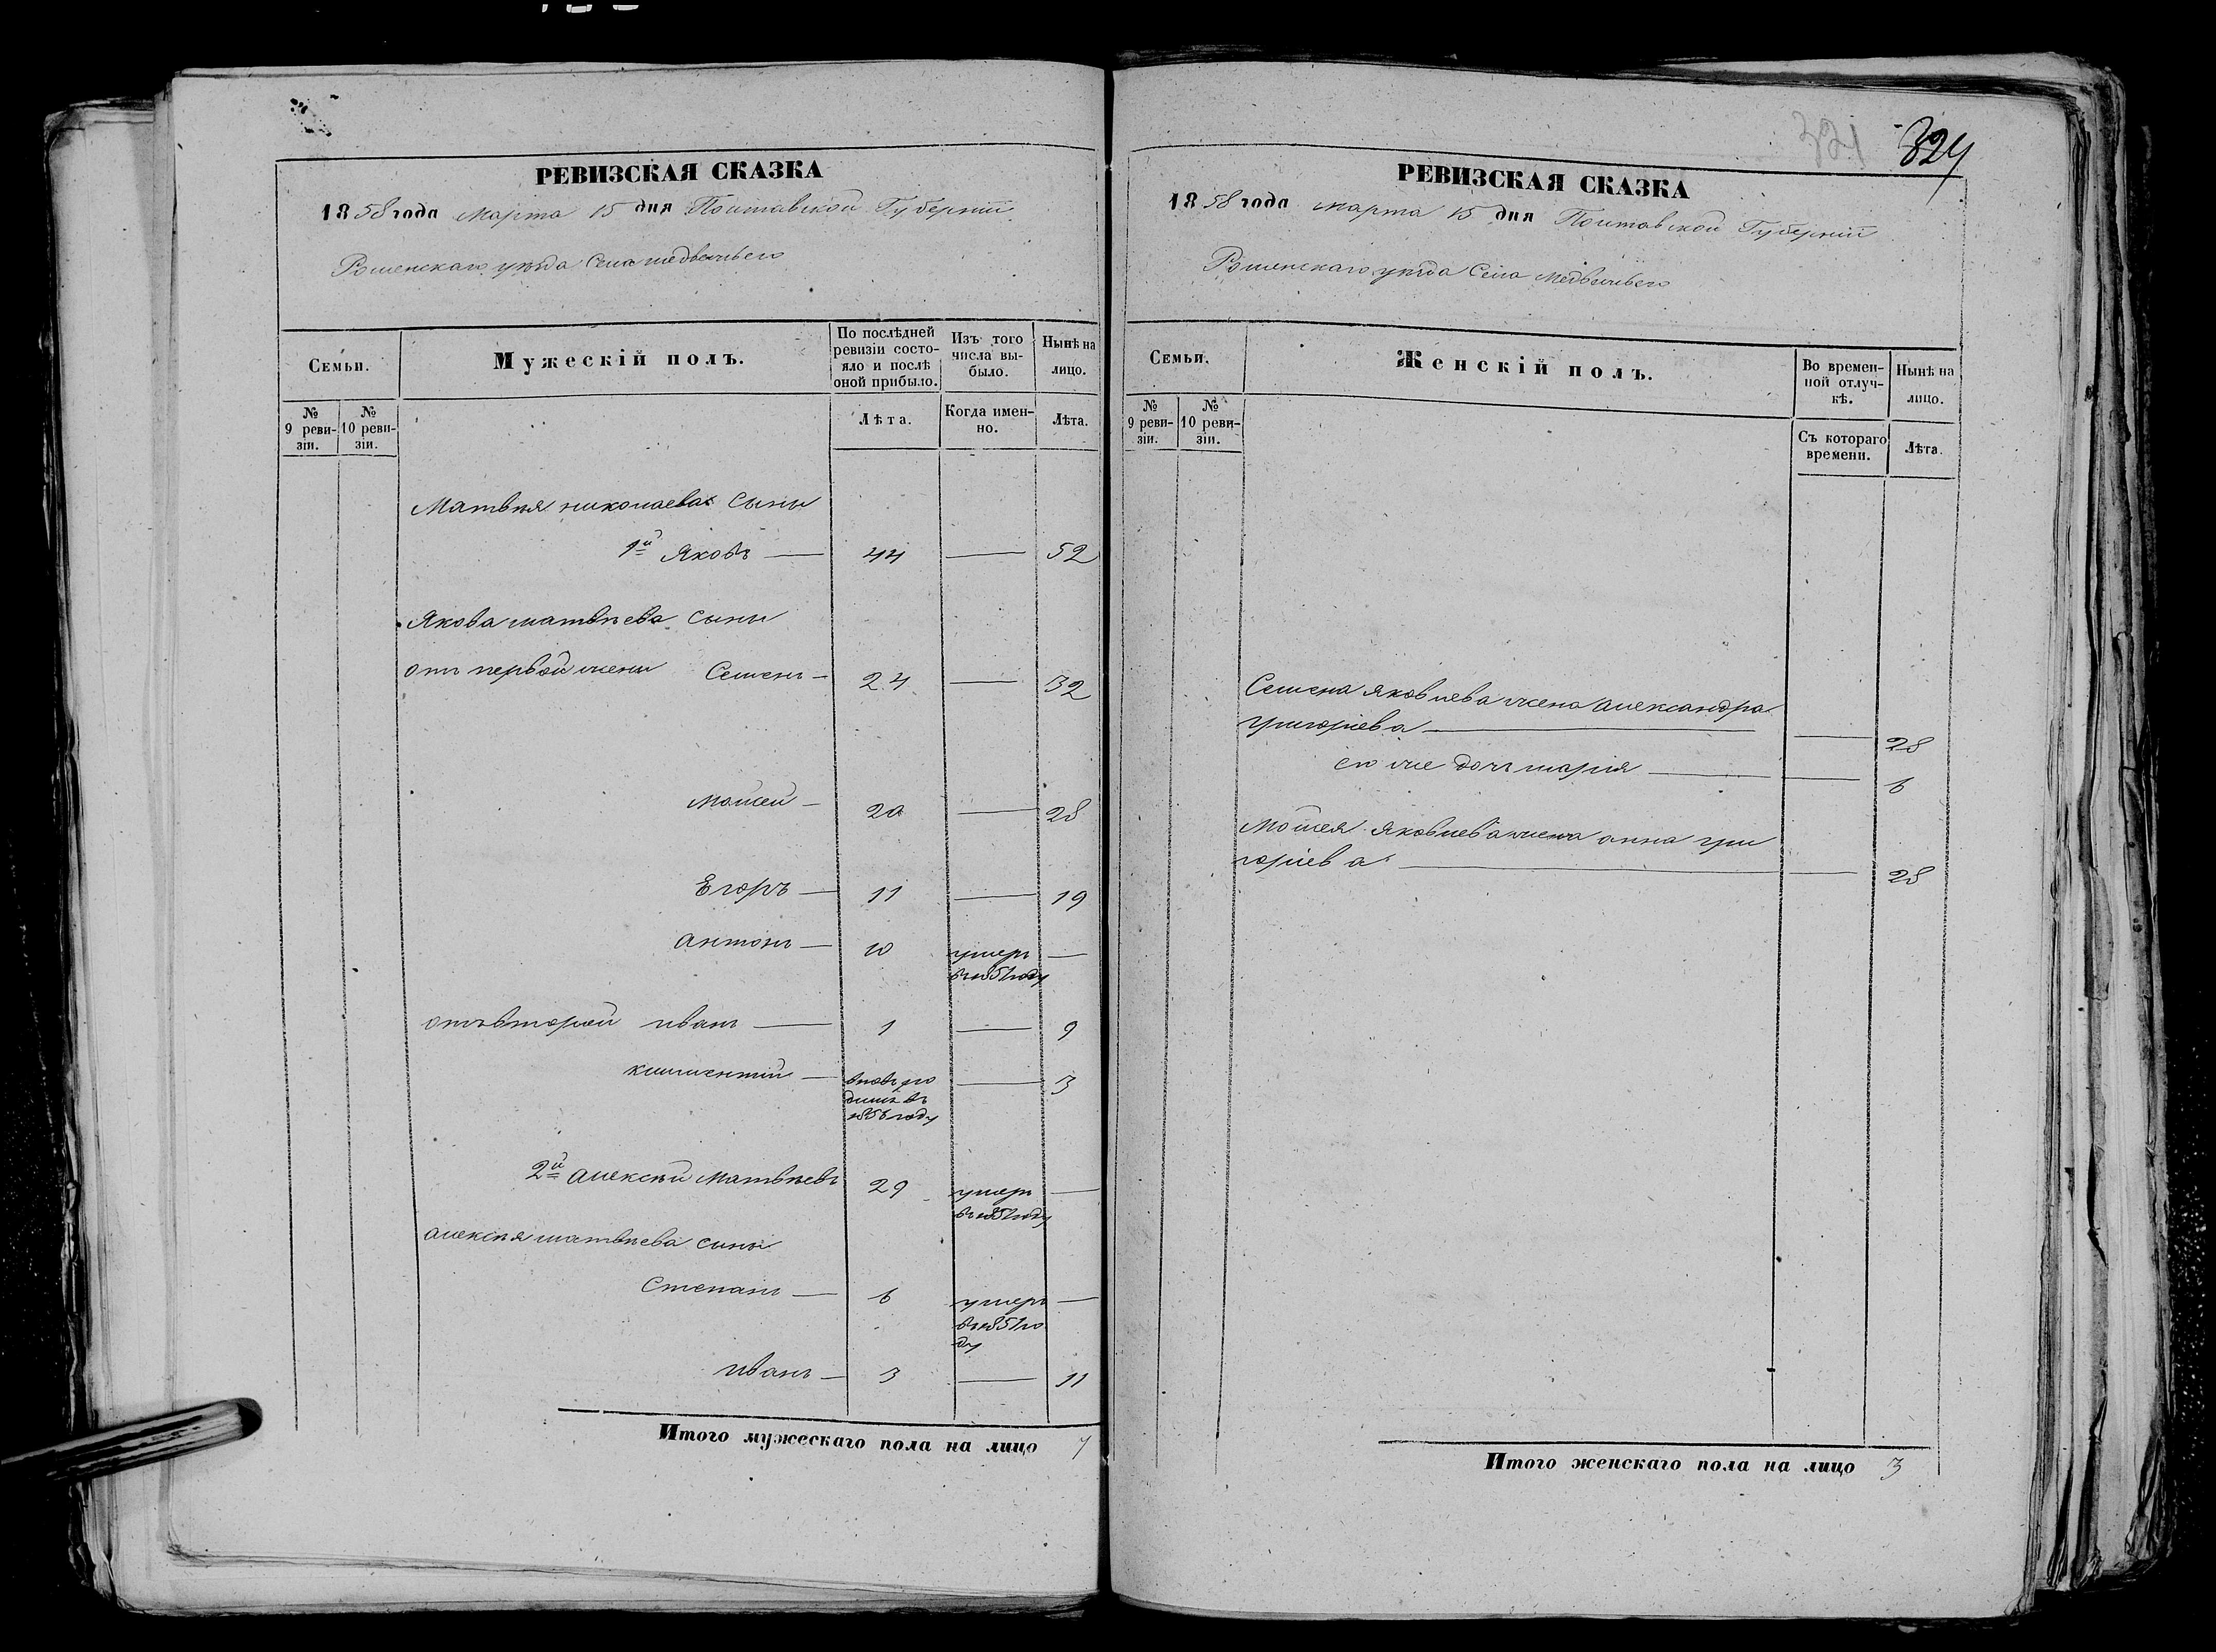 РЕВИЗСКАЯ СКАЗКА
1858 года Марта 15 дня Полтавской Губерніи
Роменскаго уѣзда Села медвежьего
Семьи.
Мужескій полъ.
По послѣдней ревизіи состояло и послѣ оной прибыло.
Изъ того числа выбыло.
Нынѣ на лицо.
№ 9 ревизіи.
№ 10 ревизіи.
Лѣта.
Когда именно.
Лѣта.
Матвѣя николаева Сыны
1й Яковъ — 44 — 52
Якова матвѣева сыны
отъ первой жены Семенъ — 24 — 32
Мойсей — 20 — 28
Егоръ — 11 — 19
антонъ — 10 умеръ —
въ 1851 году
отъ второй иванъ — 1 — 9
климентій — вновь ро — 3
дился въ
1855 году
2й алексѣй Матвѣевъ 29 умеръ —
въ 1851 году
алексѣя матвѣева сыны
Степанъ — 6 умеръ —
въ 1851 го
ду
иванъ — 3 — 11
Итого мужескаго пола на лицо 7
321 324
РЕВИЗСКАЯ СКАЗКА
1858 года марта 15 дня Полтавской Губерніи
Роменскаго уѣзда Села Медвежьего
Семьи.
Женскій полъ.
Во временной отлучкѣ.
Нынѣ на лицо.
№ 9 ревизіи.
№ 10 ревизіи.
Съ котораго времени.
Лѣта.
Семена яковлева жена александра
григоріева — — 28
его же дочь марія — — 6
Мойсея Яковлева жена анна гри
горіева — — 28
Итого женскаго пола на лицо 3